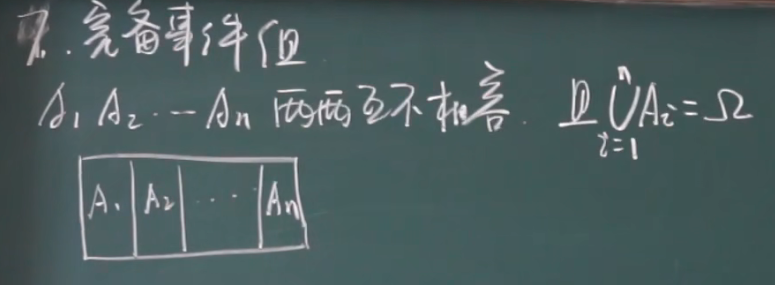 7. 完备事件组
A₁ A₂ ⋯ Aₙ 两两互不相容. 且 ⋃ᵢ₌₁ⁿ Aᵢ = Ω
A₁ A₂ ⋯ Aₙ